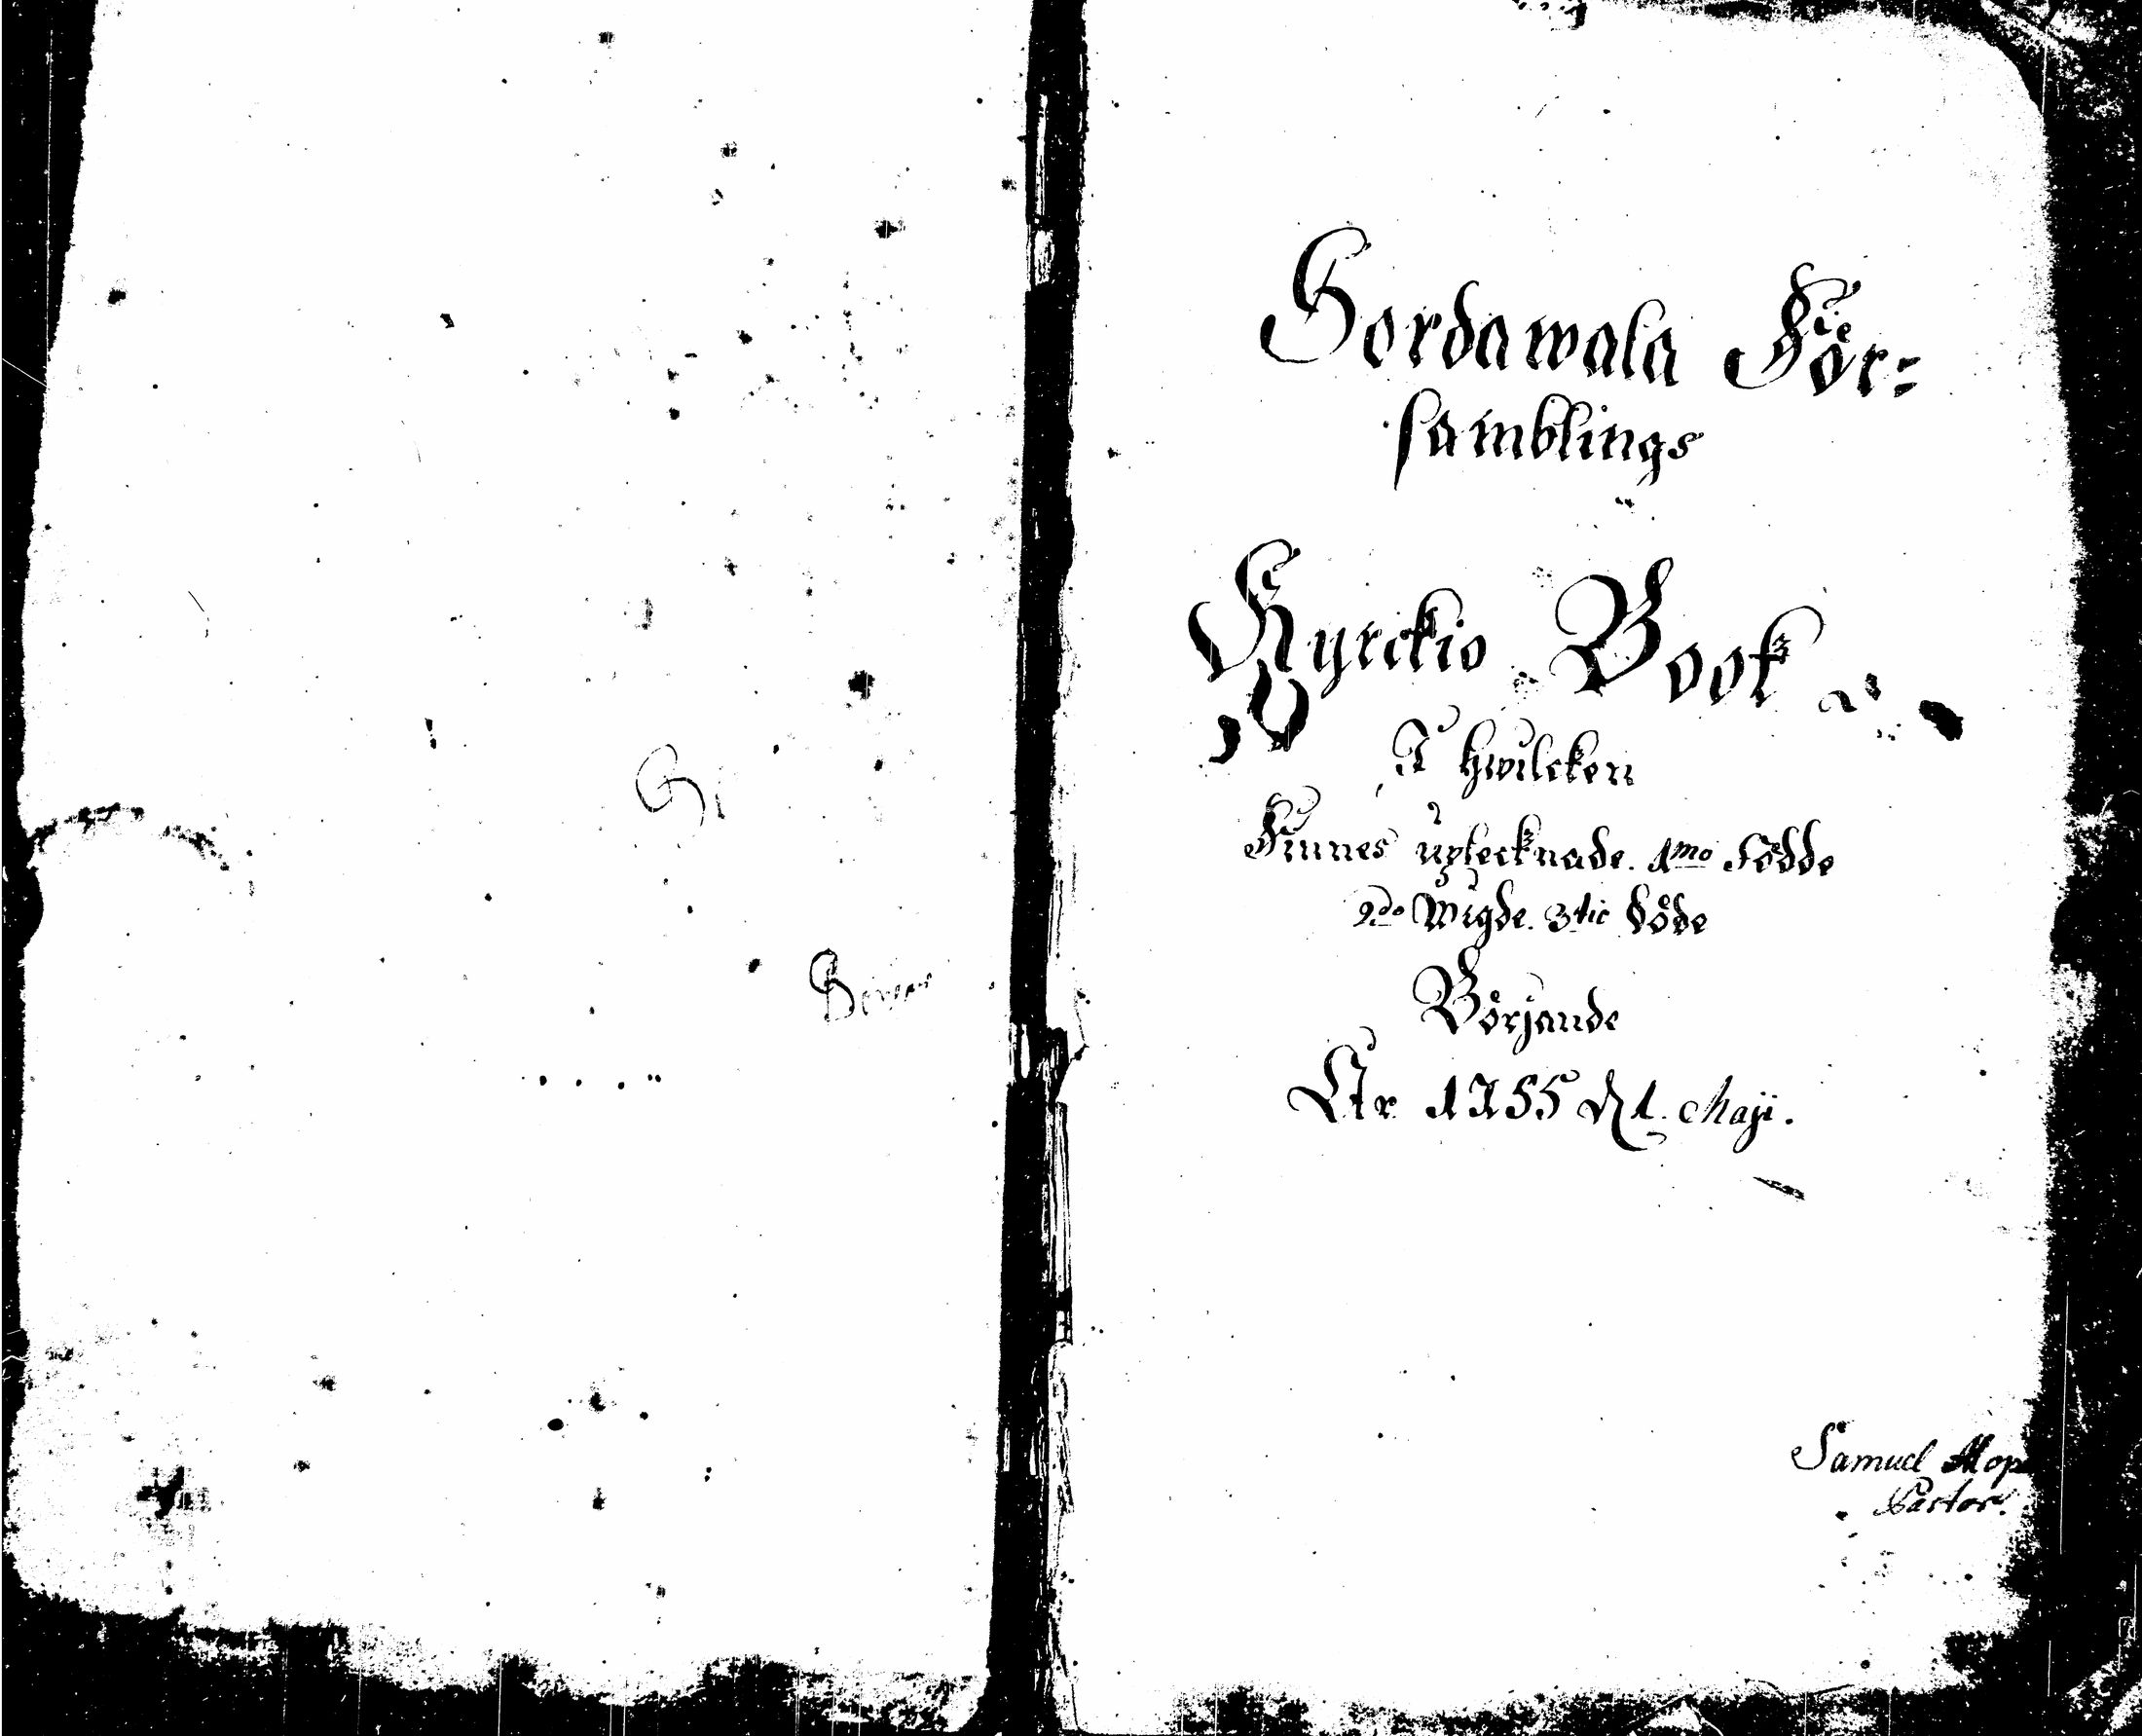 Sordawala För=
samblings
Kyrckio Book
I hwilcken
Finnes uptecknade. 1mo Födde
2do Wigde. 3tio döde
Börjande
År 1755 d 1. Maji.
Samuel
Pastor.